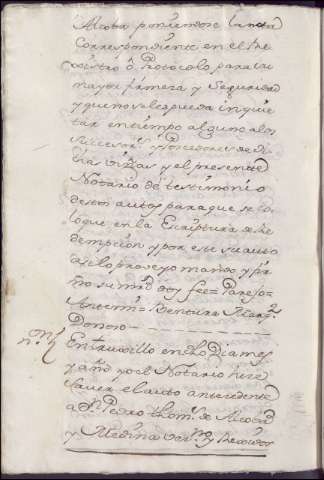 Alcova poniendose la nota
Correspondiente en el Re
xistro o Protocolo para su
mayor firmeza y Seguridad
y que no sele pueda inquie
tar en tiempo alguno alos
Succesores y poseedores de
dhas y el presente
Notario de testimonio
destos autos para que se co
loque en la Escriptura de Re
dempcion y por este su auto
asi lo proveyo mando y fir
mo su mrd doy fee = Parejo =
Antemi = Ventura Marz
Donoro
En truxillo en dho Dia mes
y año yo el Notario hize
saver el auto antecedente
a Dn Pedro thoms de
y Medina vezno y Rexidor